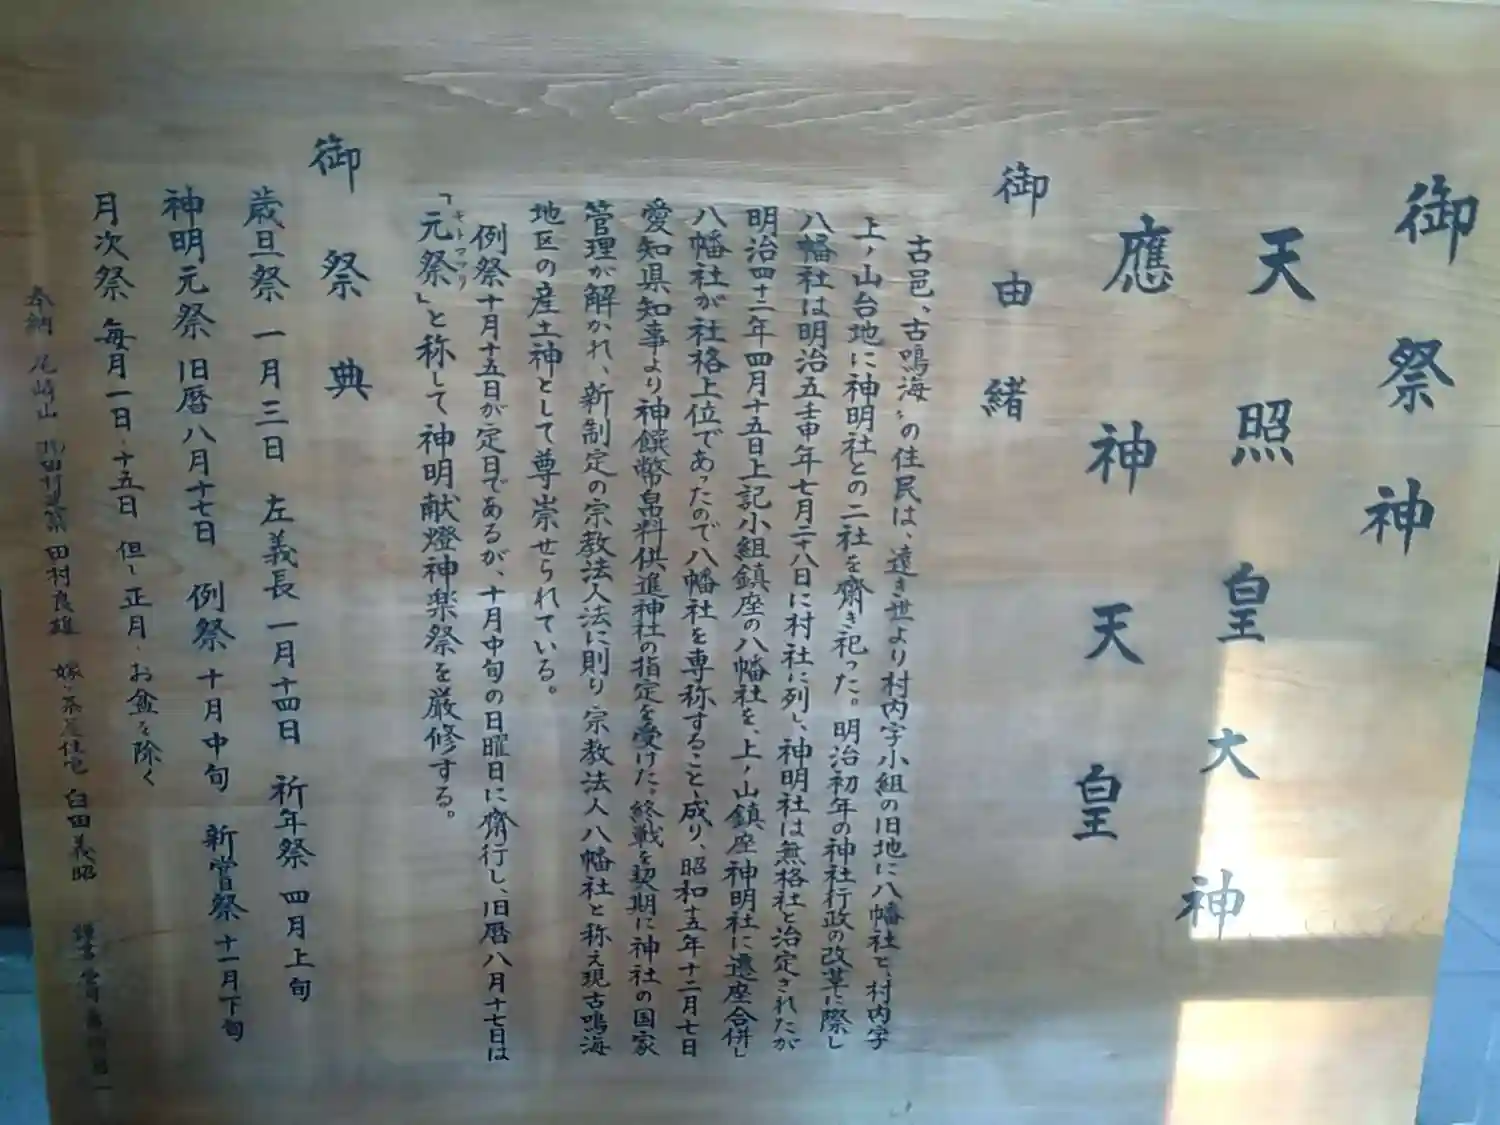 御祭神
天照皇大神
應神天皇
御由緒
古邑、古鳴海〟の住民は、遠き世より村内字小組の旧地に八幡社と、村内字
上ノ山台地に神明社との二社を齋き祀った。明治初年の神社行政の改革に際し
八幡社は明治五壬申年七月二十八日に村社に列し、神明社は無格社と治定されたが
明治四十二年四月十五日上記小組鎮座の八幡社を、上ノ山鎮座神明社に遷座合併し
八幡社が社格上位であったので八幡社を専称すること成り、昭和十五年十二月七日
愛知県知事より神饌幣帛料供進神社の指定を受けた。終戦を契期に神社の国家
管理が解かれ、新制定の宗教法人法に則り宗教法人八幡社と称え現古鳴海
地区の産土神として尊崇せられている。
例祭十月十五日が定日であるが、十月中旬の日曜日に齋行し、旧暦八月十七日は
「元祭」と称して神明献燈神楽祭を厳修する。
御祭典
歳旦祭 一月三日 左義長 一月十四日 祈年祭 四月上旬
神明元祭 旧暦八月十七日 例祭 十月中旬 新嘗祭 十一月下旬
月次祭 毎月一日・十五日 但し正月・お盆を除く
奉納 尾崎山 田村良雄 白田義昭